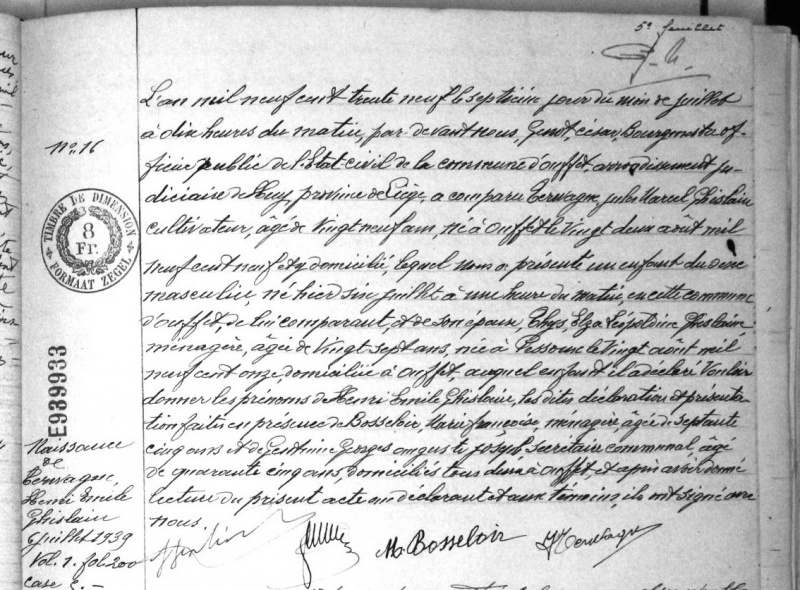 5e feuillet
L'an mil neuf cent trente neuf le septième jour du mois de juillet
No. 16
à dix heures du matin, par devant nous, Genot, césar, Bourgmestre of-
ficier public de l'Etat-civil de la commune d'ouffet, arrondissement ju-
diciaire de Huy, province de Liège, a comparu Tervagne, jules Marcel, Ghislain
cultivateur, âgé de Vingt neuf ans, né à Ouffet le Vingt deux août mil
TIMBRE DE DIMENSION
8
Fr.
FORMAAT ZEGEL
neuf cent neuf et y domicilié, lequel nous a présenté un enfant du sexe
masculin, né hier six juillet à une heure du matin, en cette commune
d'ouffet, de lui comparant, et de son épouse, Thys, Elza Léopoldine Ghislaine
ménagère, âgée de Vingt sept ans, née à Pessoux le Vingt août mil
neuf cent onze, domiciliée à Ouffet, auquel enfant il a déclaré Vouloir
donner les prénoms de Henri Emile Ghislain, les dites déclaration et présenta-
tion faites en présence de Bosseloir, Marie françoise, ménagère, âgée de septante
cinq ans et de Georges auguste joseph, secrétaire communal, âgé
de quarante cinq ans, domiciliés tous deux à Ouffet, et après avoir donné
lecture du présent acte au déclarant et aux témoins, ils ont signé avec
nous.
E939933
Naissance
de
Tervagne,
Henri Emile
Ghislain
6 juillet 1939
Vol. 1. fol. 200
case 5.-
M. Bosseloir
J Tervagne